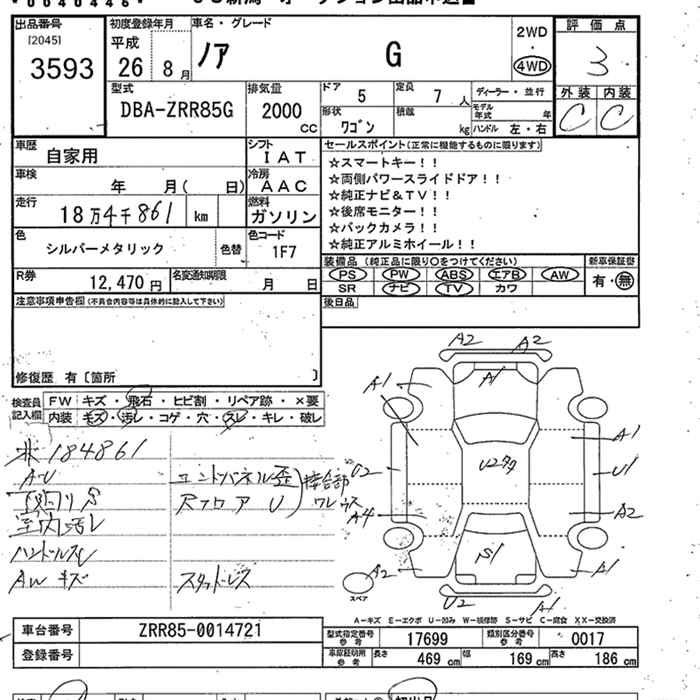 出品番号 初度登録年月 車名・グレード 評価点
[2045] 平成 2WD
3593 26 8月 ノア G 4WD 3
型式 排気量 ドア 5 定員 7人 ディーラー・並行 外装 内装
DBA-ZRR85G 2000cc 形状 ワゴン 積載 kg モデル年式 年 C C
ハンドル 左・右
車歴 自家用 シフト IAT セールスポイント(正常に機能するものに限ります)
車検 年 月( 日) 冷房 AAC ☆スマートキー!!
☆両側パワースライドドア!!
走行 18万4千861 km 燃料 ガソリン ☆純正ナビ&TV!!
☆後席モニター!!
色 シルバーメタリック 色替 色コード 1F7 ☆バックカメラ!!
☆純正アルミホイール!!
R券 12,470円 名変通知期限 月 日 装備品(純正品に限り○をつけてください) 新車保証書
PS PW ABS エアB AW 有・無
SR ナビ TV カワ
注意事項申告欄(不具合内容等は具体的に記入して下さい) 後日品
修復歴 有〔箇所 〕
検査員記入欄 FW キズ・飛石・ヒビ割・リペア跡・×要
内装 キズ・汚レ・コゲ・穴・スレ・キレ・破レ
184861
AU エンドパネル歪 接合部
Rフロア U ワレ
室内汚レ
ハンドルスレ
AW キズ スタッドレス
A2 A2
A1 A1
A1
U2 U1
A4 A2
S1
A2 A1
U2 A1
スペア
A-キズ E-エクボ U-凹み W-補修跡 S-サビ C-腐食 XX-交換済
車台番号 ZRR85-0014721 型式指定番号 参考 17699 類別区分番号 参考 0017
登録番号 車庫証明用 参考 長さ 469cm 幅 169cm 高さ 186cm